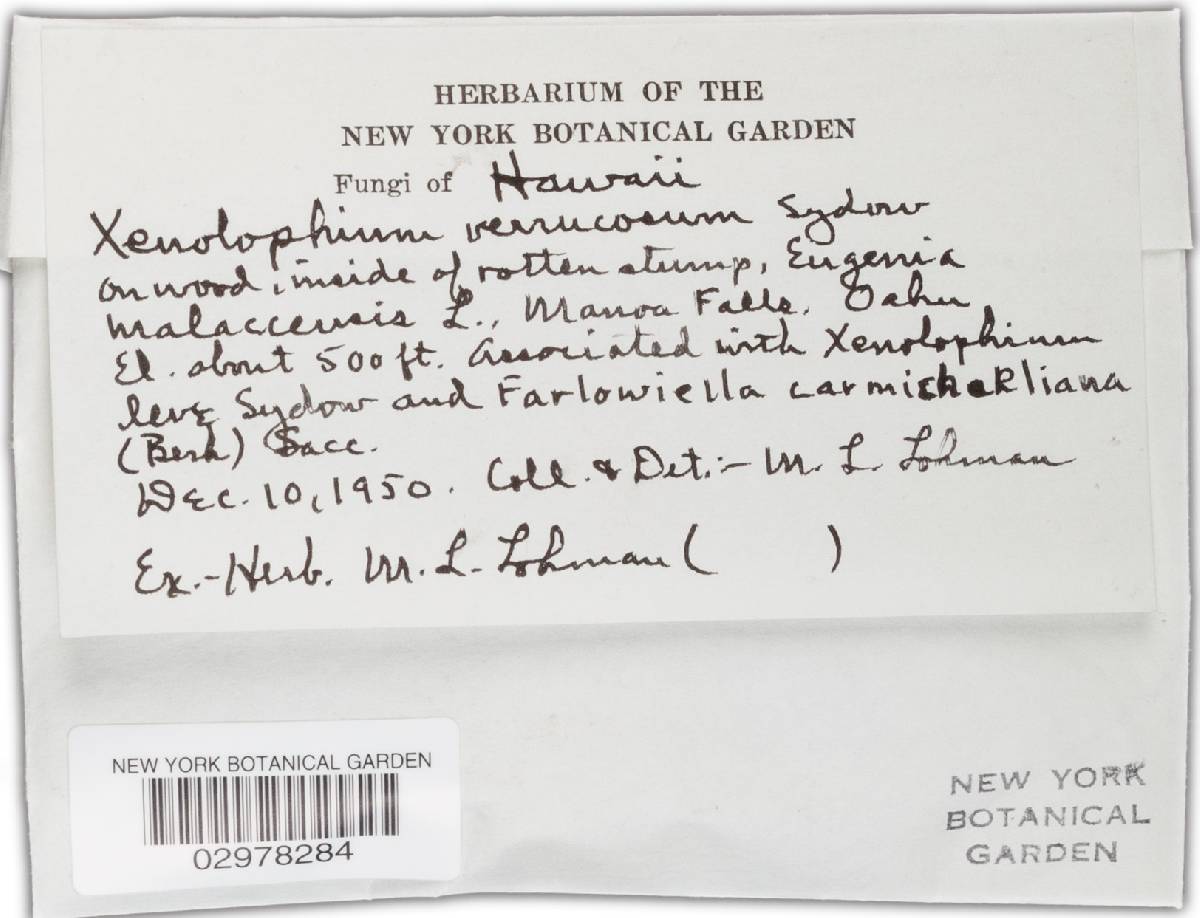 HERBARIUM OF THE
NEW YORK BOTANICAL GARDEN
Fungi of Hawaii
Xenolophium verrucosum Sydow
on wood, inside of rotten stump, Eugenia
malaccensis L., Manoa Falls, Oahu
El. about 500 ft. Associated with Xenolophium
leve Sydow and Farlowiella carmichaeliana
(Berk) Sacc.
Dec. 10, 1950. Coll. & Det.:- M. L. Lohman
Ex.-Herb. M. L. Lohman ( )
NEW YORK BOTANICAL GARDEN
02978284
NEW YORK
BOTANICAL
GARDEN